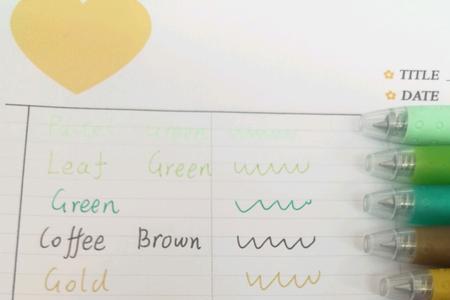 TITLE
DATE
Pastel Green
Leaf Green
Green
Coffee Brown
Gold